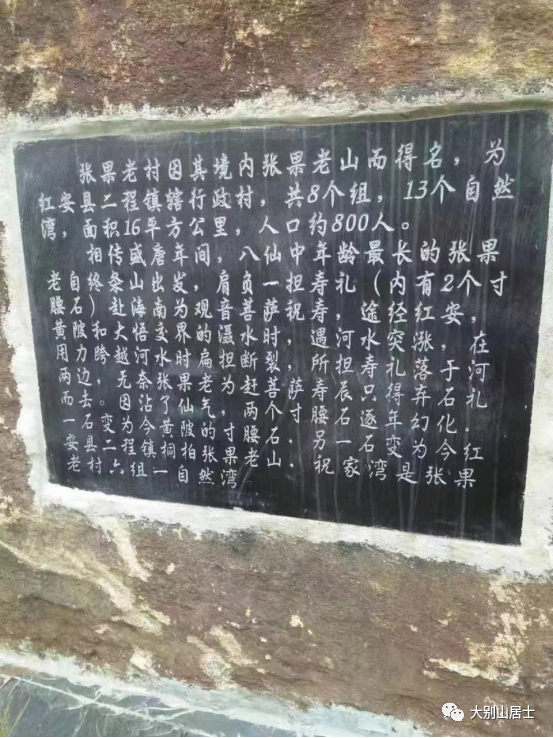 张果老村因其境内张果老山而得名，为
红安县二程镇辖行政村，共8个组，13个自然
湾，面积16平方公里，人口约800人。
相传盛唐年间，八仙中年龄最长的张果
老自终条山出发，肩负一担寿礼（内有2个寸
腰石）赴海南为观音菩萨祝寿，途径红安，
黄陂和大悟交界的滠水时，遇河水突涨，在
用力跨越河水时扁担断裂，所担寿礼落于河
两边，无奈张果老为赶菩萨寿辰只得弃石礼
而去。因沾了仙气的两个寸腰石逐年幻化.
一石变为今黄陂的寸腰石.另一石变为今红
安县二程镇桐柏张果老山.祝家湾是张果
老村六组一自然湾
大别山居士